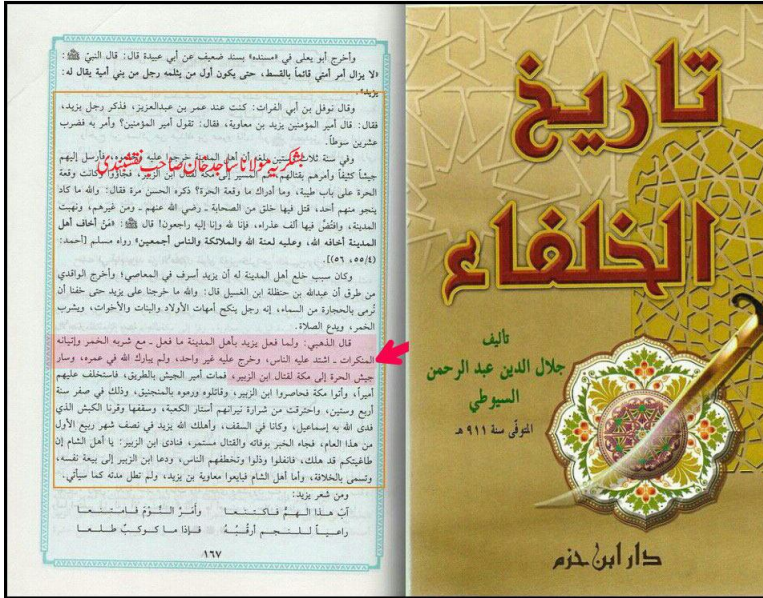 وأخرج أبو يعلى في «مسنده» بسند ضعيف عن أبي عبيدة قال: قال النبيّ ﷺ:
«لا يزال أمر أمتي قائماً بالقسط، حتى يكون أول من يثلمه رجل من بني أمية يقال له:
يزيد».
وقال نوفل بن أبي الفرات: كنت عند عمر بن عبدالعزيز، فذكر رجل يزيد،
فقال: قال أمير المؤمنين يزيد بن معاوية، فقال: تقول أمير المؤمنين؟ وأمر به فضرب
عشرين سوطاً.
بشکریہ مولانا ساجد خان صاحب نقشبندی
وفي سنة ثلاث وستين بلغه أن أهل المدينة خرجوا عليه وخلعوه، فأرسل إليهم
جيشاً كثيفاً وأمرهم بقتالهم، ثم المسير إلى مكة لقتال ابن الزبير، فجاؤوا وكانت وقعة
الحرة على باب طيبة، وما أدراك ما وقعة الحرة؟ ذكره الحسن مرة فقال: والله ما كاد
ينجو منهم أحد، قتل فيها خلق من الصحابة - رضي الله عنهم - ومن غيرهم، ونهبت
المدينة، وافتُضّ فيها ألف عذراء، فإنا لله وإنا إليه راجعون! قال ﷺ: «مَنْ أخاف أهل
المدينة أخافه الله، وعليه لعنة الله والملائكة والناس أجمعين» رواه مسلم [أحمد:
(٤/٥٥، ٥٦)].
وكان سبب خلع أهل المدينة له أن يزيد أسرف في المعاصي؛ وأخرج الواقدي
من طرق أن عبدالله بن حنظلة ابن الغسيل قال: والله ما خرجنا على يزيد حتى خفنا أن
نُرمى بالحجارة من السماء، إنه رجل ينكح أمهات الأولاد والبنات والأخوات، ويشرب
الخمر، ويدع الصلاة.
قال الذهبي: ولما فعل يزيد بأهل المدينة ما فعل - مع شربه الخمر وإتيانه
المنكرات - اشتد عليه الناس، وخرج عليه غير واحد، ولم يبارك الله في عمره، وسار
جيش الحرة إلى مكة لقتال ابن الزبير، فمات أمير الجيش بالطريق، فاستخلف عليهم
أميراً، وأتوا مكة فحاصروا ابن الزبير، وقاتلوه ورموه بالمنجنيق، وذلك في صفر سنة
أربع وستين، واحترقت من شرارة نيرانهم أستار الكعبة، وسقفها وقرنا الكبش الذي
فدى الله به إسماعيل، وكانا في السقف، وأهلك الله يزيد في نصف شهر ربيع الأول
من هذا العام، فجاء الخبر بوفاته والقتال مستمر، فنادى ابن الزبير: يا أهل الشام إن
طاغيتكم قد هلك، فانفلوا وذلوا وتخطفهم الناس، ودعا ابن الزبير إلى بيعة نفسه،
وتسمى بالخلافة، وأما أهل الشام فبايعوا معاوية بن يزيد، ولم تطل مدته كما سيأتي.
ومن شعر يزيد:
آبَ هذا الهمُّ فاكتنعا وأمَرَّ النَّوْمَ فامتنعا
راعياً للنجم أرقُبُهُ فإذا ما كوكبٌ طلعا
١٦٧
تاريخ
الخلفاء
تأليف
جلال الدين عبد الرحمن
السيوطي
المتوفّى سنة ٩١١ هـ
دار ابن حزم